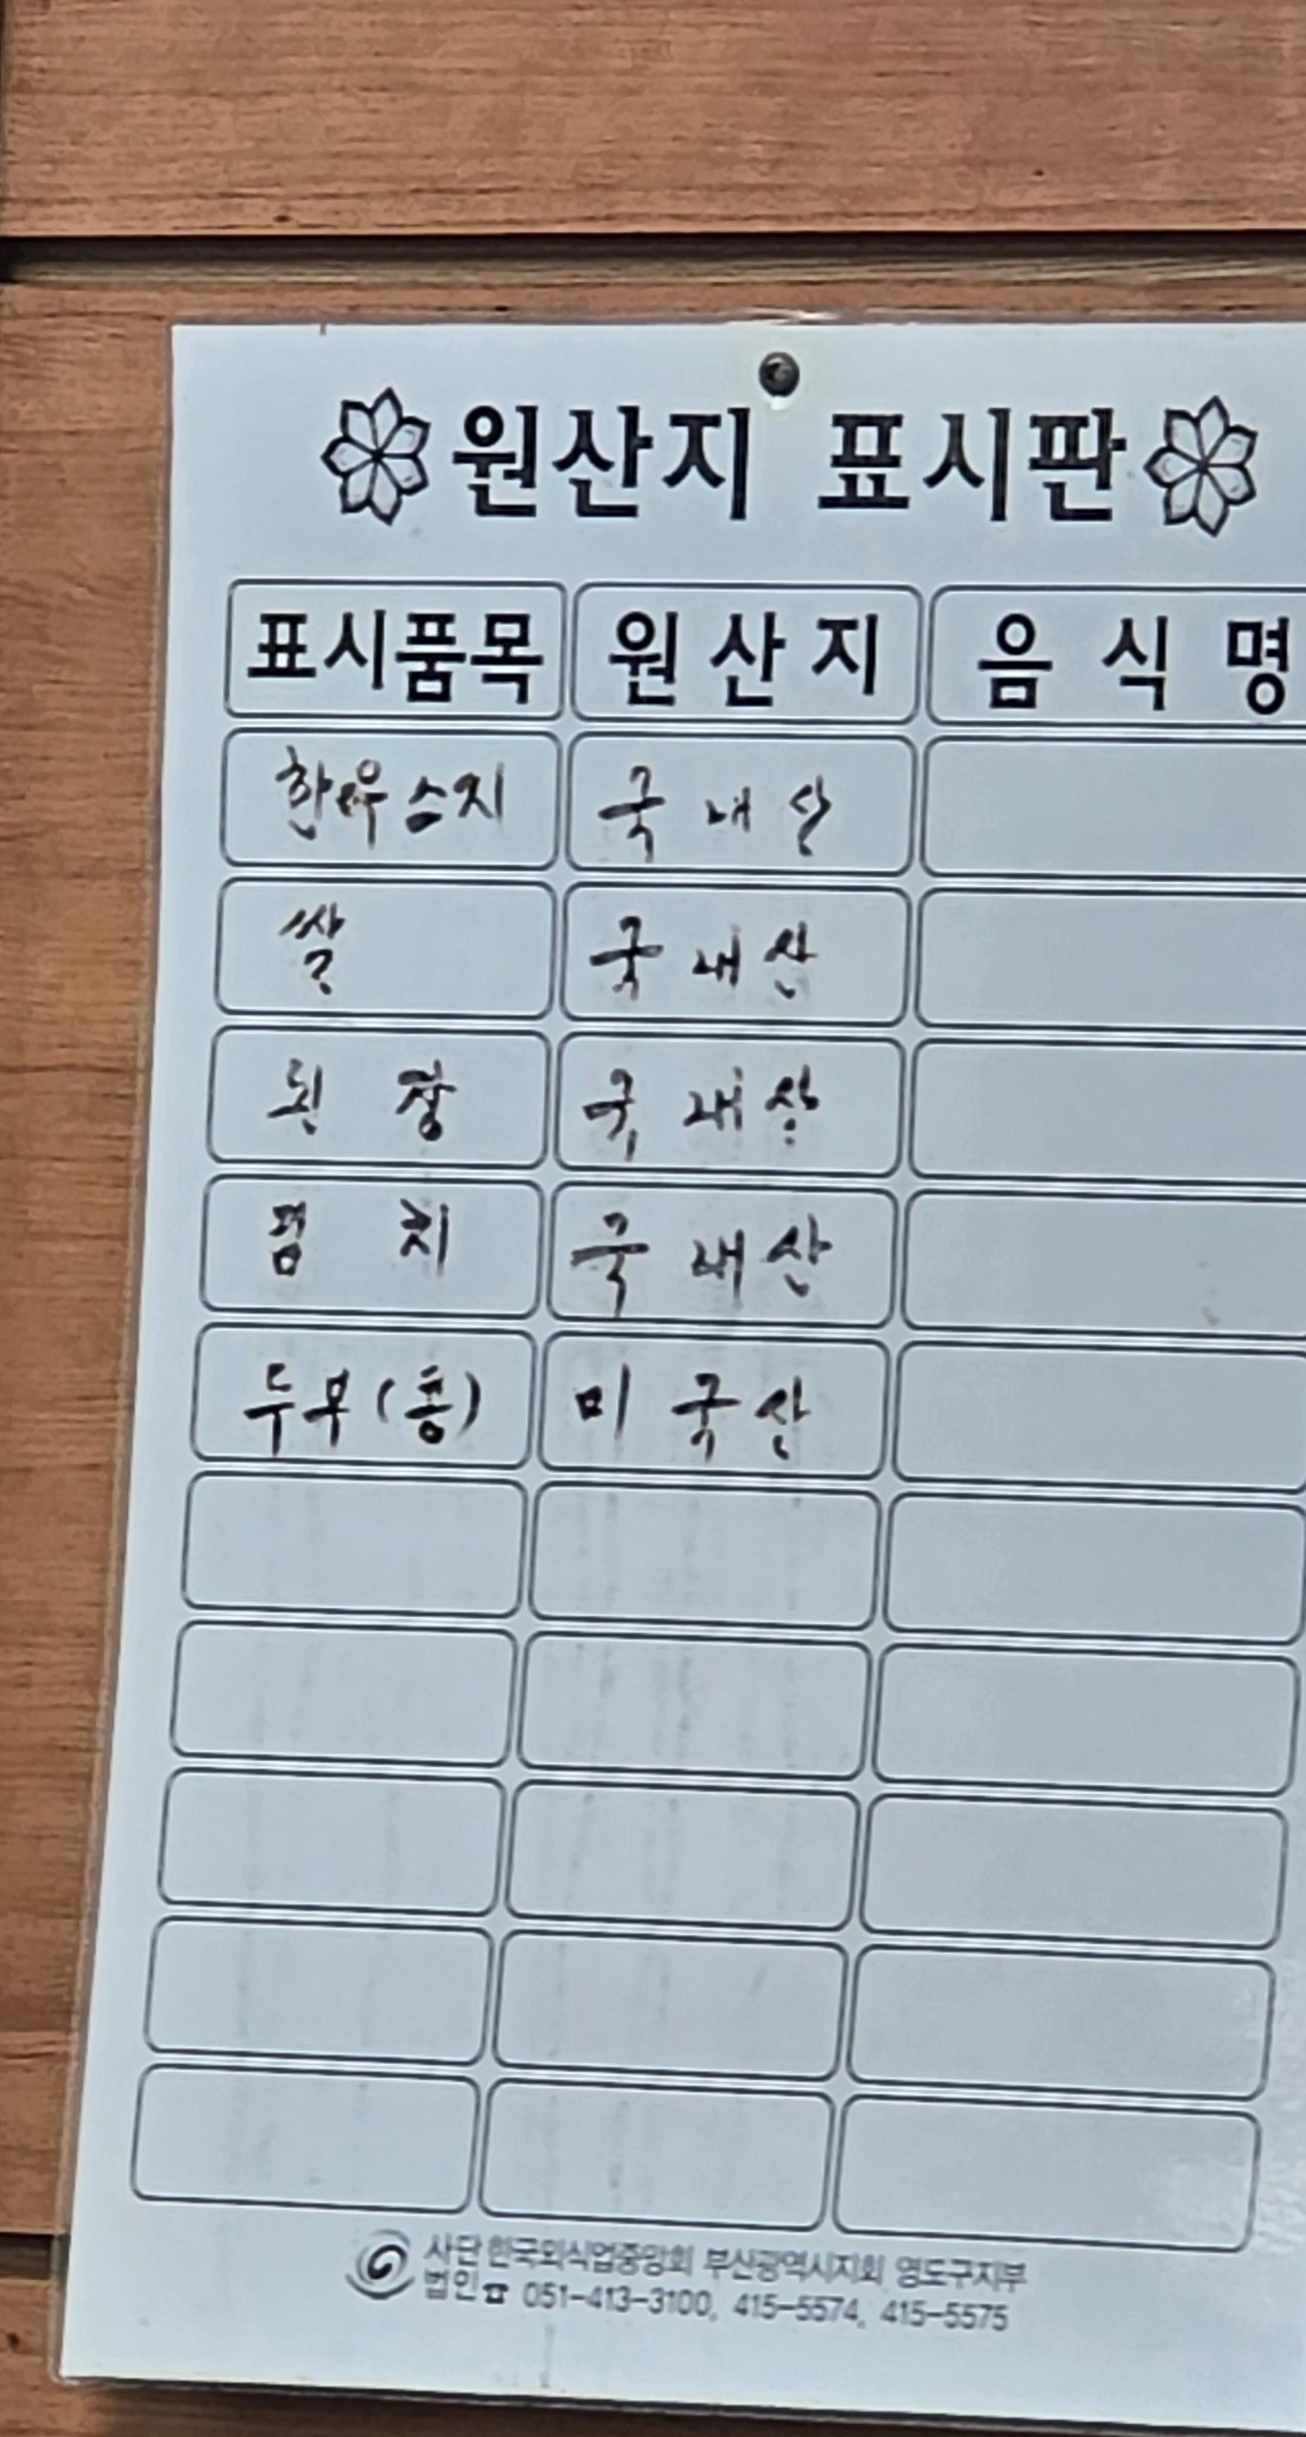 원산지 표시판
표시품목 원산지 음식명
한우스지 국내산
쌀 국내산
된장 국내산
김치 국내산
두부(콩) 미국산
사단 한국외식업중앙회 부산광역시지회 영도구지부
법인 ☎ 051-413-3100, 415-5574, 415-5575